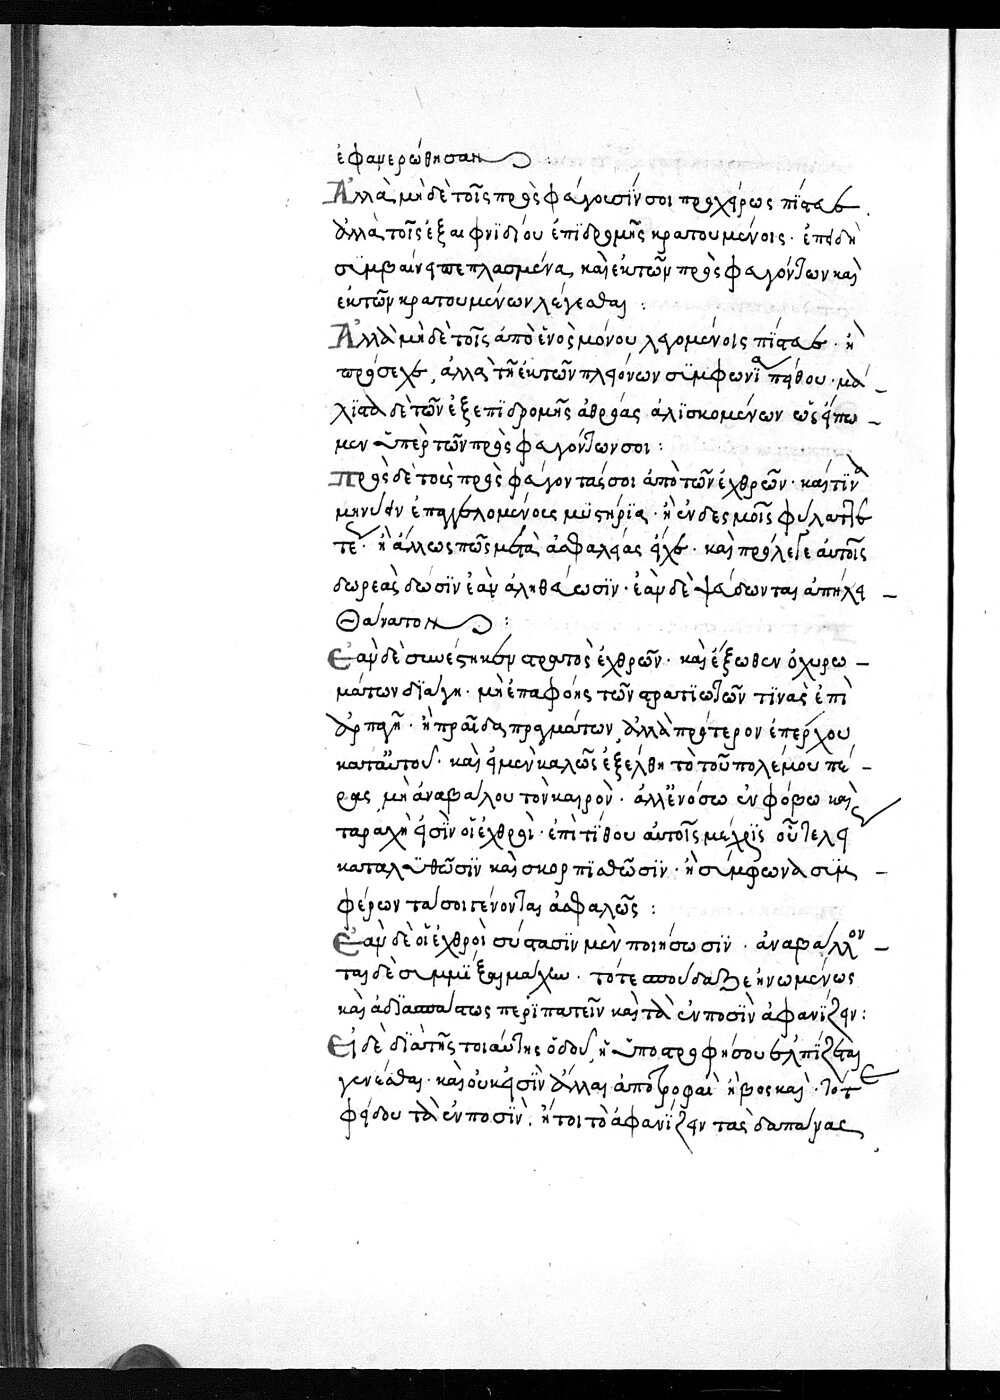 ἐφανερώθησαν
Ἀλλὰ μὴ δὲ τοῖς προσφεύγουσίν σοι προχείρως πίστευε
ἀλλὰ τοῖς ἐξ αιφνιδίου ἐπιδρομῆς κρατουμένοις· ἐπειδὴ
συμβαίνει πεπλασμένα καὶ ἐκ τῶν προσφευγόντων καὶ
ἐκ τῶν κρατουμένων λέγεσθαι:
Ἀλλὰ μὴ δὲ τοῖς ἀπὸ ἑνὸς μόνου λεγομένοις πίστευε· ἢ
πρόσεχε, ἀλλὰ τῇ ἐκ τῶν πλειόνων συμφωνία πείθου· μά-
λιστα δὲ τῶν ἐξ ἐπιδρομῆς ἀθρόας ἁλισκομένων ὡς εἴπω-
μεν ὑπὲρ τῶν προσφευγόντων σοι:
Πρὸς δὲ τοὺς προσφεύγοντάς σοι ἀπὸ τῶν ἐχθρῶν· καί τινα
μηνύειν ἐπαγγελομένους μυστήρια· ἢ ἐν δεσμοῖς φύλαττε
τε· ἢ ἄλλως πῶς μετὰ ἀσφαλείας εἶχε· καὶ πρόλεγε αὐτοῖς
δωρεὰς δώσιν ἐὰν ἀληθεύωσιν· ἐὰν δὲ ψεύδωνται ἀπήλει
θάνατον:
Ἐὰν δὲ συνέστηκεν στρατὸς ἐχθρῶν· καὶ ἔξωθεν ὀχυρω-
μάτων διάγη· μὴ ἐπαφοῆς τῶν στρατιωτῶν τινὰς ἐπὶ
ἁρπαγῆ· ἢ πραῖδα πραγμάτων, ἀλλὰ πρότερον ἐπέρχου
κατ' αὐτοῦ· καὶ εἰ μὲν καλῶς ἐξέλθη τὸ τοῦ πολέμου πέ-
ρας, μὴ ἀναβάλου τὸν καιρὸν· ἀλλ' ἐνόσω ἐν φόβω καὶ
ταραχῆ εἰσὶν οἱ ἐχθροὶ· ἐπιτίθου αὐτοῖς μέχρις οὗ τελει
καταλυθῶσιν καὶ σκορπισθῶσιν· ἢ σύμφωνα συμ-
φέρωντα σοι γένονται ἀσφαλῶς:
Ἐὰν δὲ οἱ ἐχθροὶ σύστασιν μὲν ποιήσωσιν· ἀναβάλλον-
ται δὲ συμμίξαι μάχω· τότε σπούδαζε ἡνωμένως
καὶ ἀδιασπάστως περιπατεῖν καὶ τὰ ἐν ποσὶν ἀφανίζειν:
Εἰ δὲ διὰ τῆς τοιαύτης ὁδοῦ, ἢ ὑποστρφήσου ἐλπίζεται
γενέσθαι· καὶ οὐκ εἰσὶν ἄλλαι ἀποτροφαὶ ἢ βοσκαὶ· τότε
φείδου τὰ ἐν ποσὶν· ἤτοι τὸ ἀφανίζειν τὰς δαπάνας